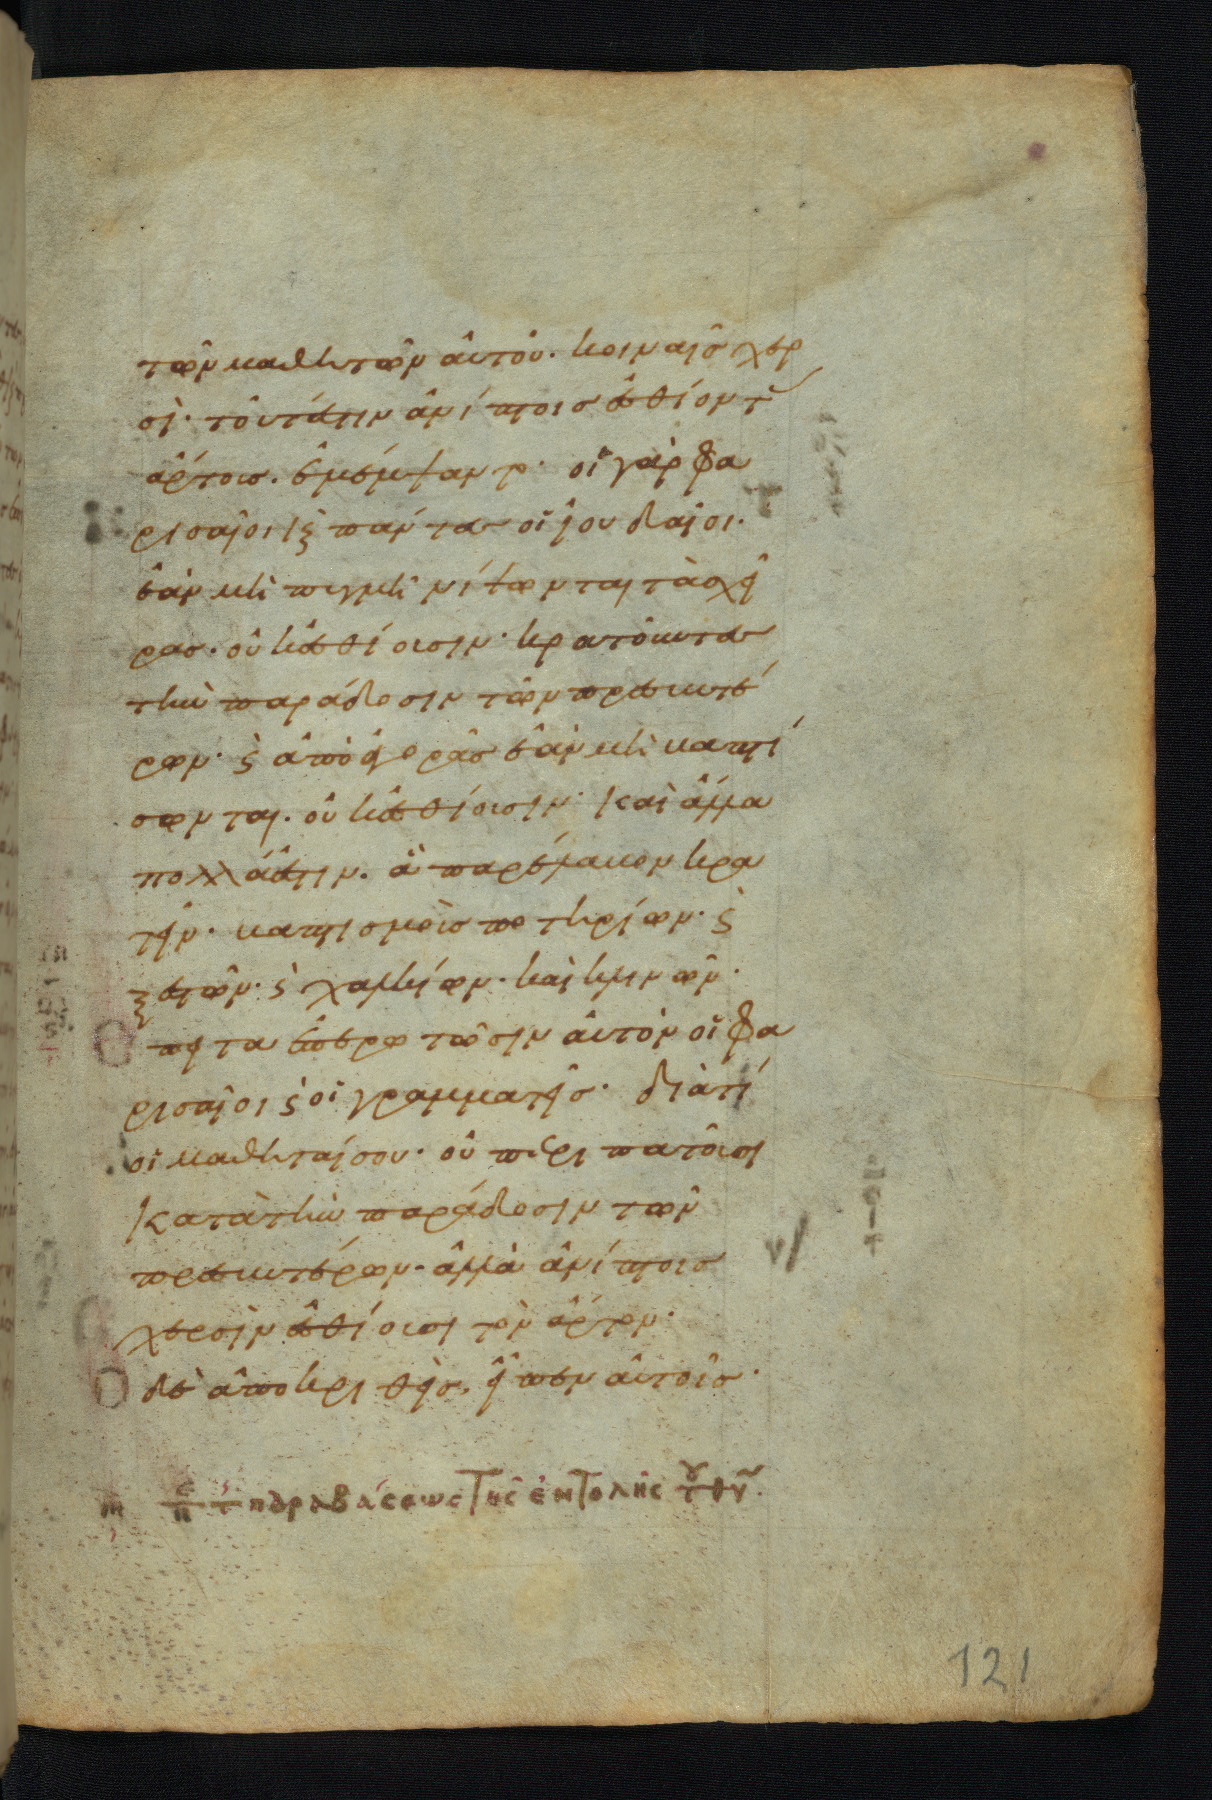 τῶν μαθητῶν αὐτοῦ· κοιναῖς χερ
σὶ· τουτέστιν ἀνίπτοις ἐσθίοντ
ἄρτους. ἐμέμψαντο· οἱ γὰρ φα
ρισαῖοι καὶ πάντες οἱ ἰουδαῖοι·
ἐὰν μὴ πυγμῇ νίψωνται τὰς χεῖ
ρας· οὐκ ἐσθίουσιν· κρατοῦντες
τὴν παράδοσιν τῶν πρεσβυτέ
ρων· ϛ ἀπὸ ἀγορᾶς ἐὰν μὴ βαπτί
σωνται. οὐκ ἐσθίουσιν· καὶ ἄλλα
πολλά ἐστιν. ἃ παρέλαβον κρα
τεῖν· βαπτισμοὺς ποτηρίων· ϛ
ξεστῶν· ϛ χαλκίων· καὶ κλινῶν·
πειτα ἐπερωτῶσιν αὐτὸν οἱ φα
ρισαῖοι ϛ οἱ γραμματεῖς· διατί
οἱ μαθηταί σου· οὐ περιπατοῦσι
κατὰ τὴν παράδοσιν τῶν
πρεσβυτέρων· ἀλλὰ ἀνίπτοις
χερσὶν ἐσθίουσι τὸν ἄρτον·
δὲ ἀποκριθεὶς, εἶπεν αὐτοῖς·
παραβάσεως τῆς ἐντολῆς τοῦ θυ.
121